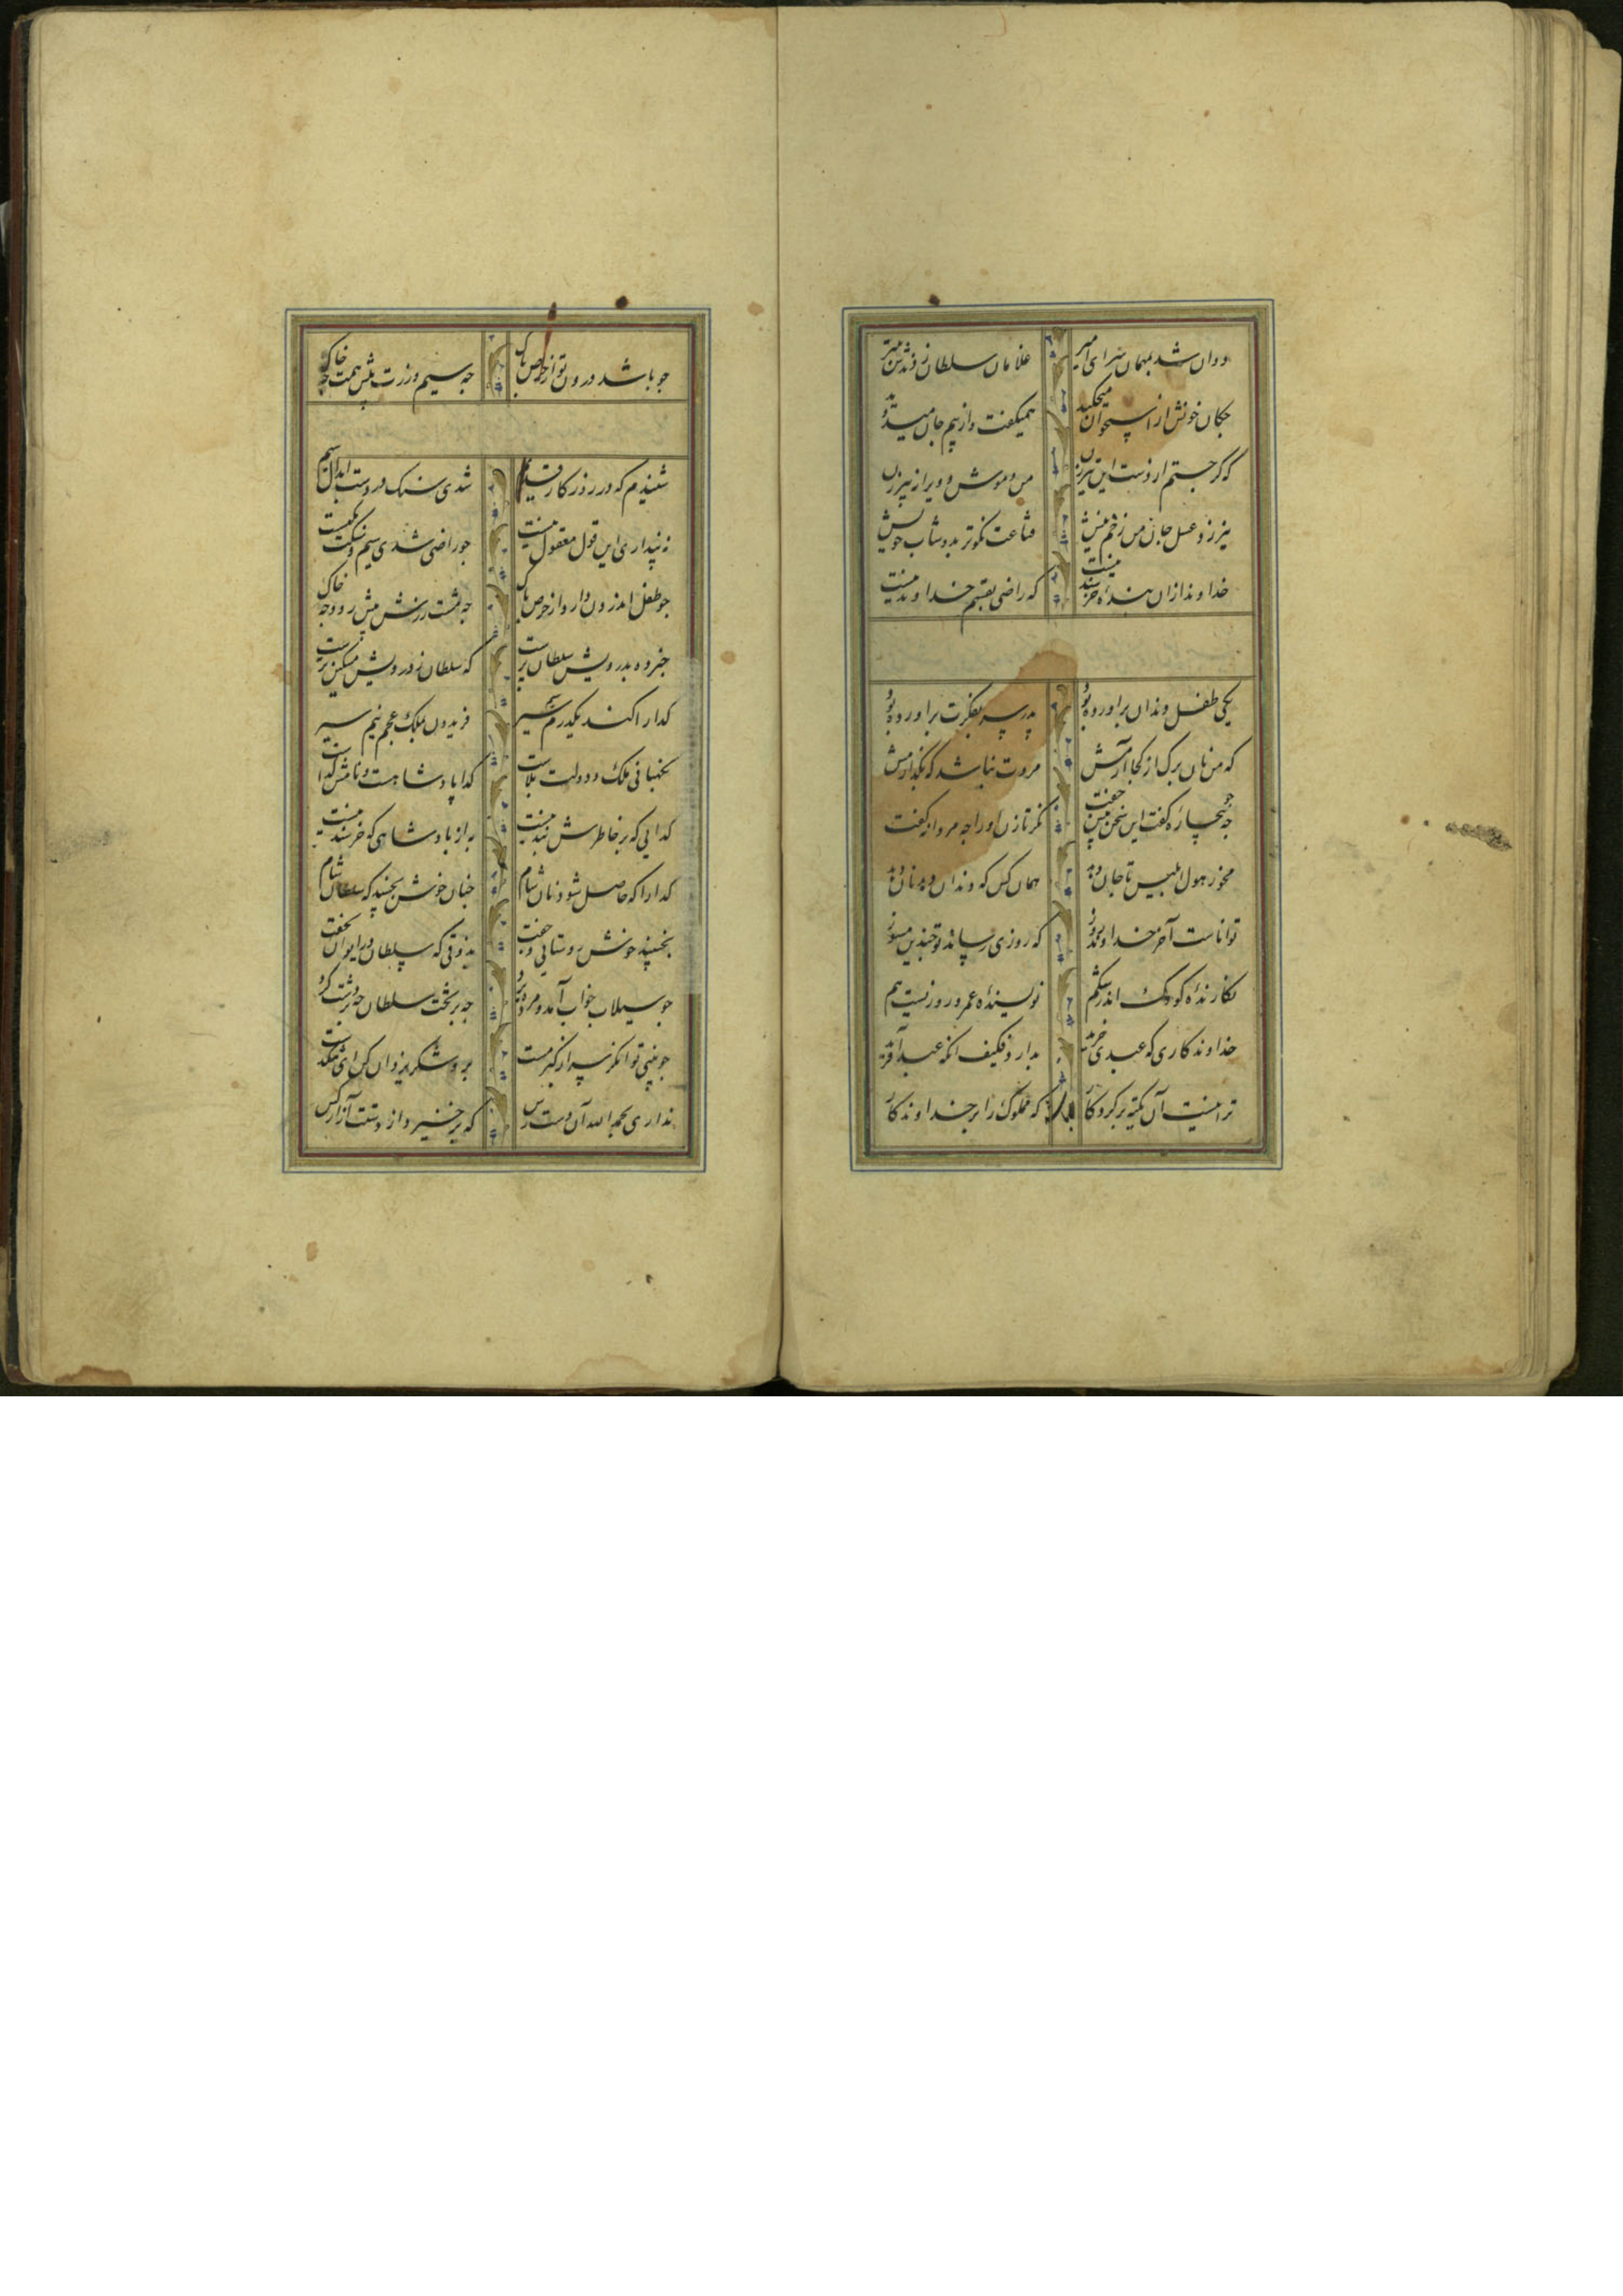 دوان شد بمهمان سرای امیر غلامان سلطان زدندش بتیر
چکان خونش از استخوان میچکید همیگفت و از بیم جان میدوید
که گر جستم از دست این تیرزن من و موش و ویرانه پیرزن
نیرزد عسل جان من زخم نیش قناعت نکوتر بدوشاب خویش
خداوند ازان بنده خرسند نیست که راضی بقسم خداوند نیست
یکی طفل دندان برآورده بود پدر سر بفکرت برآورده بود
که من نان برگ از کجا آرمش مروت نباشد که بگذارمش
چو بیچاره گفت این سخن پیش جفت نگر تا زن او را چه مردانه گفت
مخور هول ابلیس تا جان دهد همان کس که دندان دهد نان دهد
تواناست آخر خداوند روز که روزی رساند تو چندین مسوز
نکارنده کودک اندر شکم نویسنده عمر و روزیست هم
خداوندکاری که عبدی خرید بدارد فکیف انکه عبد آفرید
ترا نیست آن تکیه بر کردکار که مملوک را بر خداوندکار
شنیدم که در روزکار قدیم شدی سنک در دست ابدال سیم
نپنداری این قول معقول نیست چو راضی شدی سیم و سنکت یکیست
چو طفل اندرون دارد از حرص پاک چه مشت زرش پیش رو و چه خاک
خبر ده بدرویش سلطان پرست که سلطان ز درویش مسکین ترست
کدا را کند یکدرم سیم سیر فریدون بملک عجم نیم سیر
نکهبانی ملک و دولت بلاست کدا پادشاهست و نامش کداست
کدایی که بر خاطرش بند نیست به از پادشاهی که خرسند نیست
کدا را که حاصل شود نان شام چنان خوش بخسپد که سلطان شام
بخسپند خوش روستایی و جفت بذوقی که سلطان در ایوان نخفت
چو سیلاب خواب آمد و مرد برد چه بر تخت سلطان چه بر دشت کرد
چو بینی توانکر سر از کبر مست برو شکر یزدان کن ای تنکدست
نداری بحمدالله آن دسترس که برخیزد از دستت آزار کس
چو باشد درون تو از حرص پاک چه سیم و زرت پیش همت چه خاک